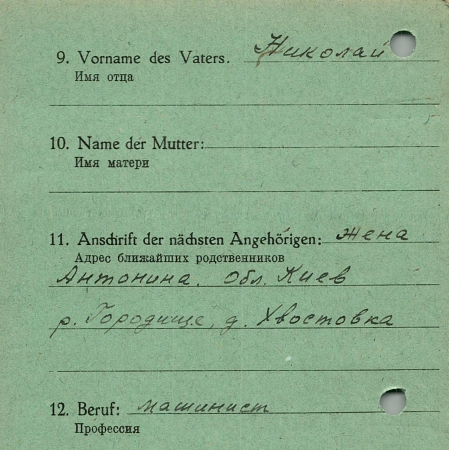 9. Vorname des Vaters. Николай
Имя отца
10. Name der Mutter:
Имя матери
11. Anschrift der nächsten Angehörigen: жена
Адрес ближайших родственников
Антонина. Обл. Киев
р. Городище, д. Хвостовка
12. Beruf: машинист
Профессия